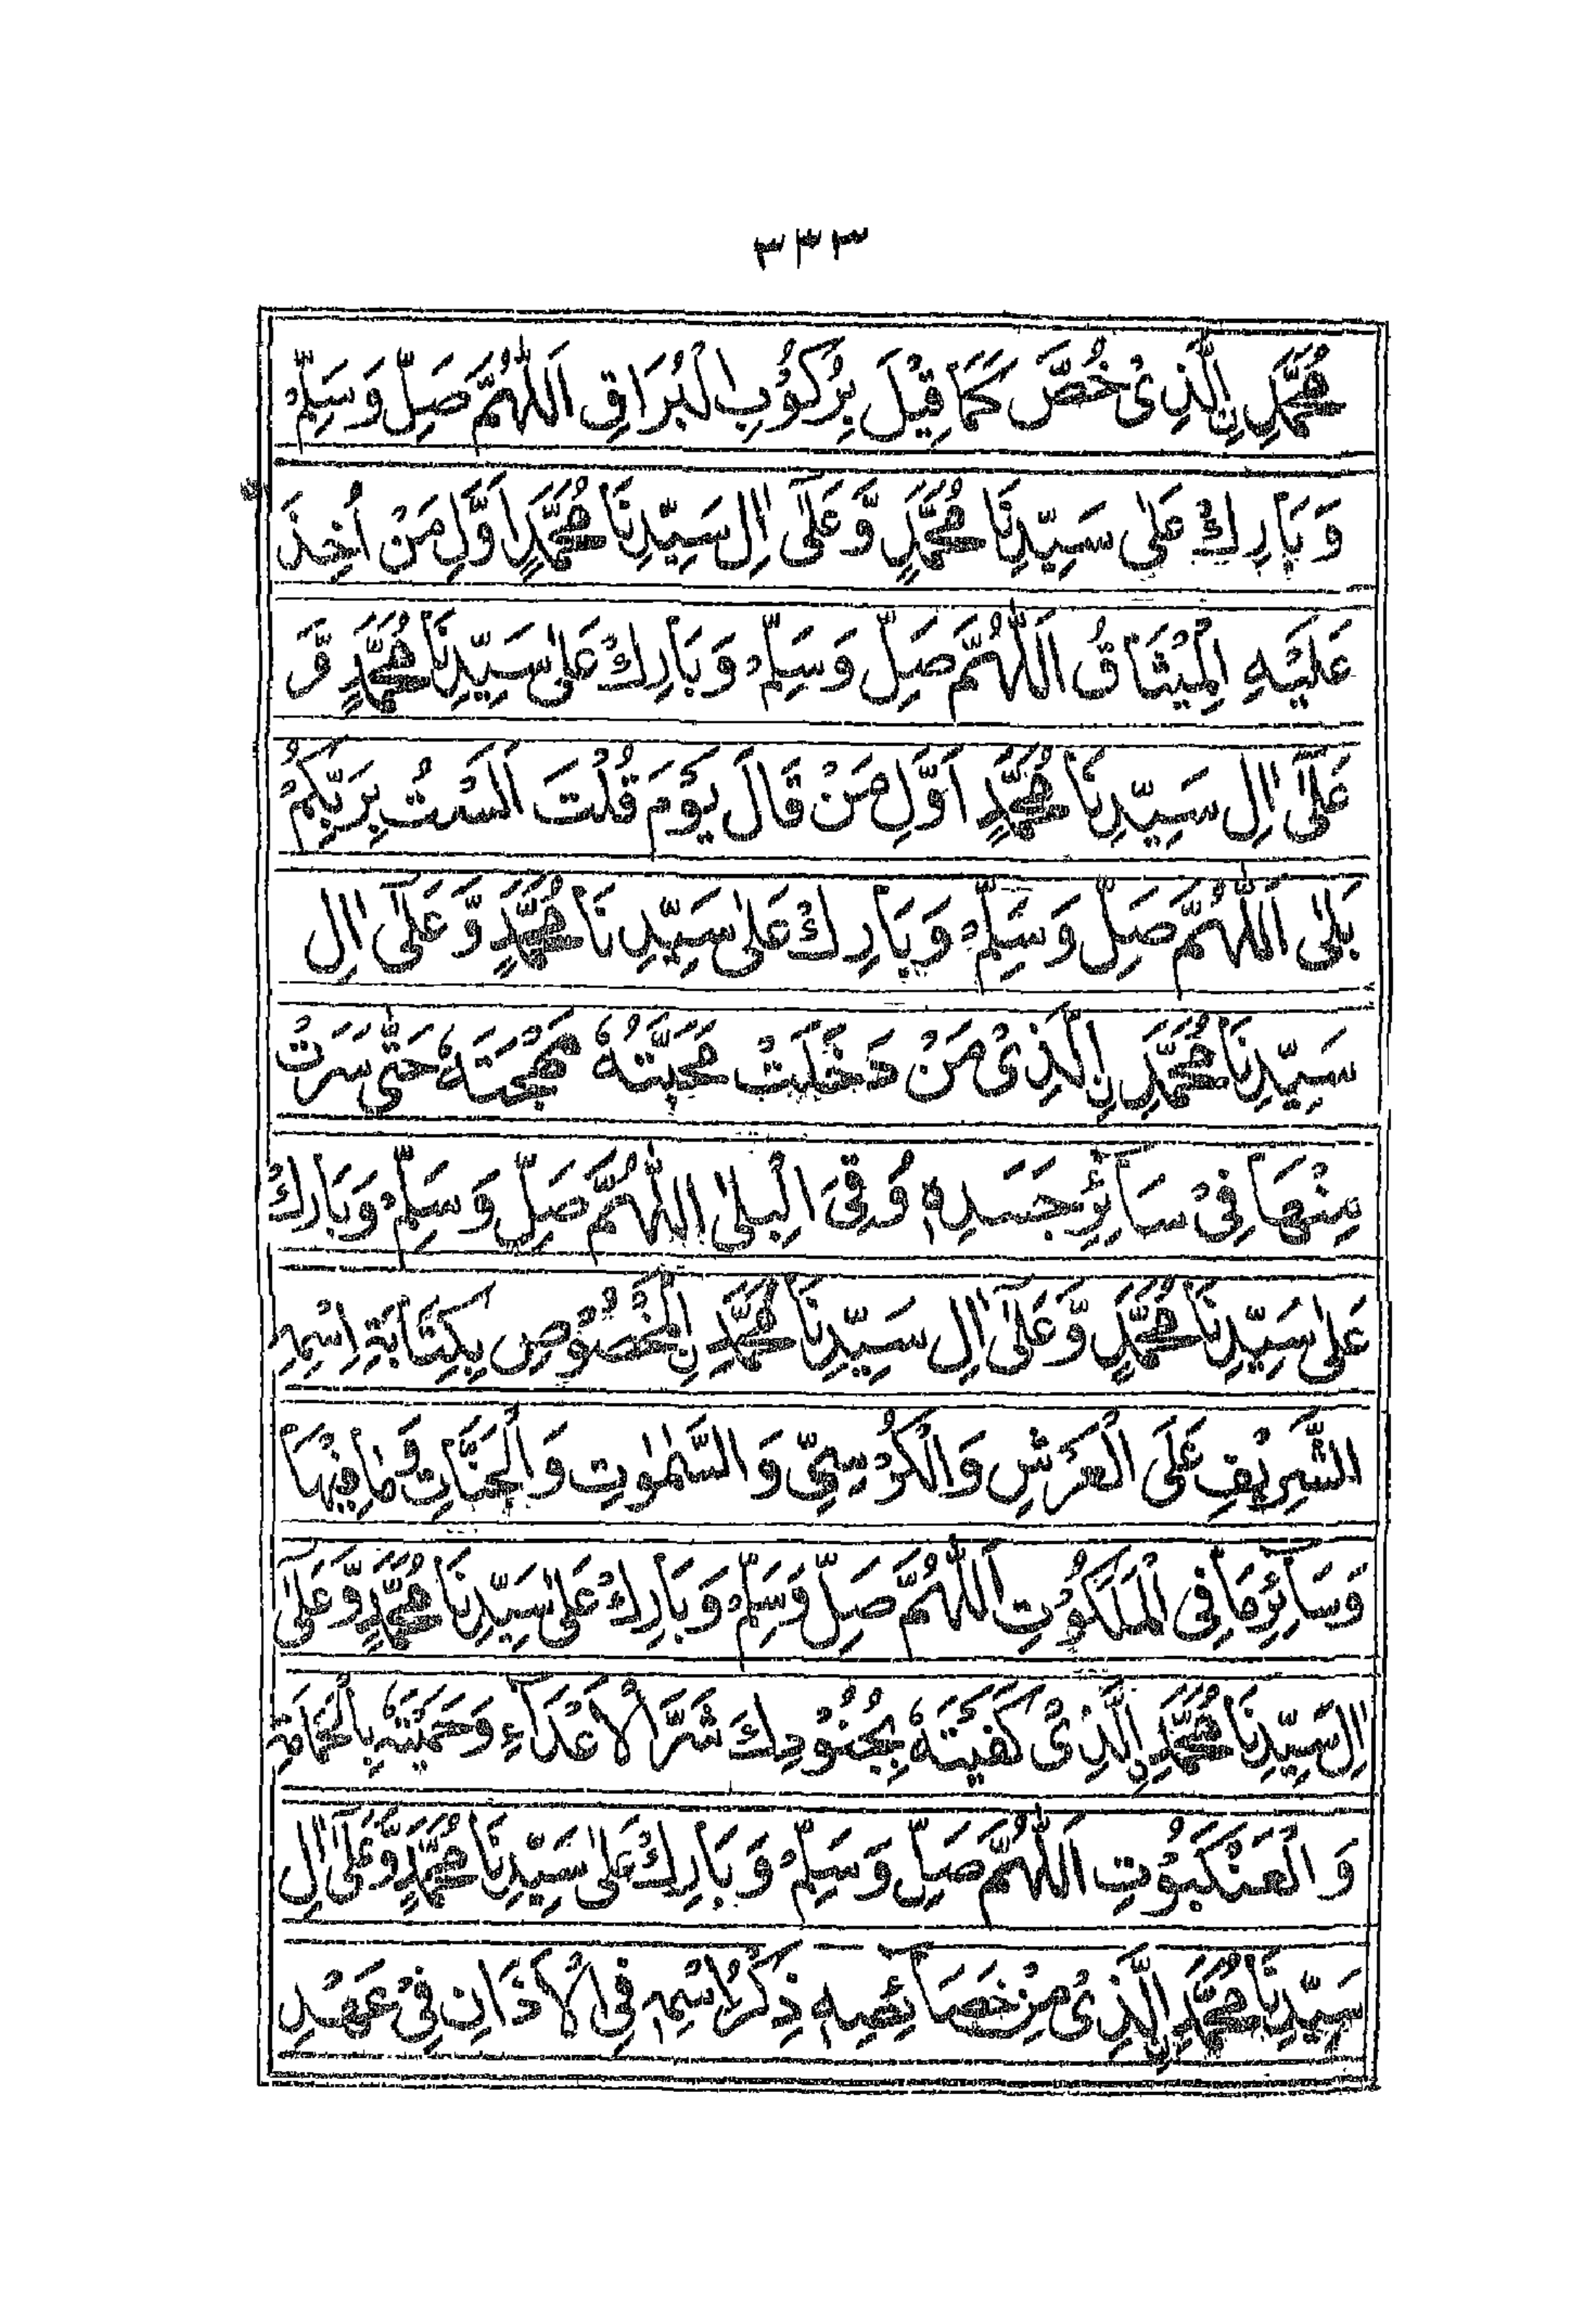 ٣٣٣
مُحَمَّدِ نِ الَّذِیْ خُصَّ كَمَا قِیْلَ بِرُكُوْبِ الْبُرَاقِ اَللّٰهُمَّ صَلِّ وَسَلِّمْ
وَبَارِكْ عَلٰی سَیِّدِنَا مُحَمَّدٍ وَّعَلٰۤی اٰلِ سَیِّدِنَا مُحَمَّدٍ اَوَّلِ مَنْ اُخِذَ
عَلَیْهِ الْمِیْثَاقُ اَللّٰهُمَّ صَلِّ وَسَلِّمْ وَبَارِكْ عَلٰی سَیِّدِنَا مُحَمَّدٍ وَّ
عَلٰۤی اٰلِ سَیِّدِنَا مُحَمَّدٍ اَوَّلِ مَنْ قَالَ یَوْمَ قُلْتَ اَلَسْتُ بِرَبِّكُمْ
بَلٰی اَللّٰهُمَّ صَلِّ وَسَلِّمْ وَبَارِكْ عَلٰی سَیِّدِنَا مُحَمَّدٍ وَّعَلٰۤی اٰلِ
سَیِّدِنَا مُحَمَّدِ نِ الَّذِیْ مَنْ دَخَلَتْ مَحَبَّتُهٗ مُهْجَتَهٗ حَتّٰی سَرَتْ
مِنْهَا فِیْ سَآئِرِ جَسَدِهٖ وُقِیَ الْبِلٰی اللّٰهُمَّ صَلِّ وَسَلِّمْ وَبَارِكْ
عَلٰی سَیِّدِنَا مُحَمَّدٍ وَّعَلٰۤی اٰلِ سَیِّدِنَا مُحَمَّدِ نِ الْمَخْصُوْصِ بِكِتَابَةِ اِسْمِهِ
الشَّرِیْفِ عَلَی الْعَرْشِ وَالْكُرْسِیِّ وَالسَّمٰوٰتِ وَالْجَنَّاتِ وَمَا فِیْهَا
وَسَآئِرِ مَا فِی الْمَلَكُوْتِ اَللّٰهُمَّ صَلِّ وَسَلِّمْ وَبَارِكْ عَلٰی سَیِّدِنَا مُحَمَّدٍ وَّعَلٰۤی
اٰلِ سَیِّدِنَا مُحَمَّدِ نِ الَّذِیْ كَفَیْتَهٗ بِجُنُوْدِكَ شَرَّ الْاَعْدَآءِ وَحَمَیْتَهٗ بِالْحَمَامَةِ
وَالْعَنْكَبُوْتِ اَللّٰهُمَّ صَلِّ وَسَلِّمْ وَبَارِكْ عَلٰی سَیِّدِنَا مُحَمَّدٍ وَّعَلٰۤی اٰلِ
سَیِّدِنَا مُحَمَّدِ نِ الَّذِیْ مِنْ خَصَآئِصِهٖ ذِكْرُ اسْمِهٖ فِی الْاَذَانِ فِیْ عَهْدِ